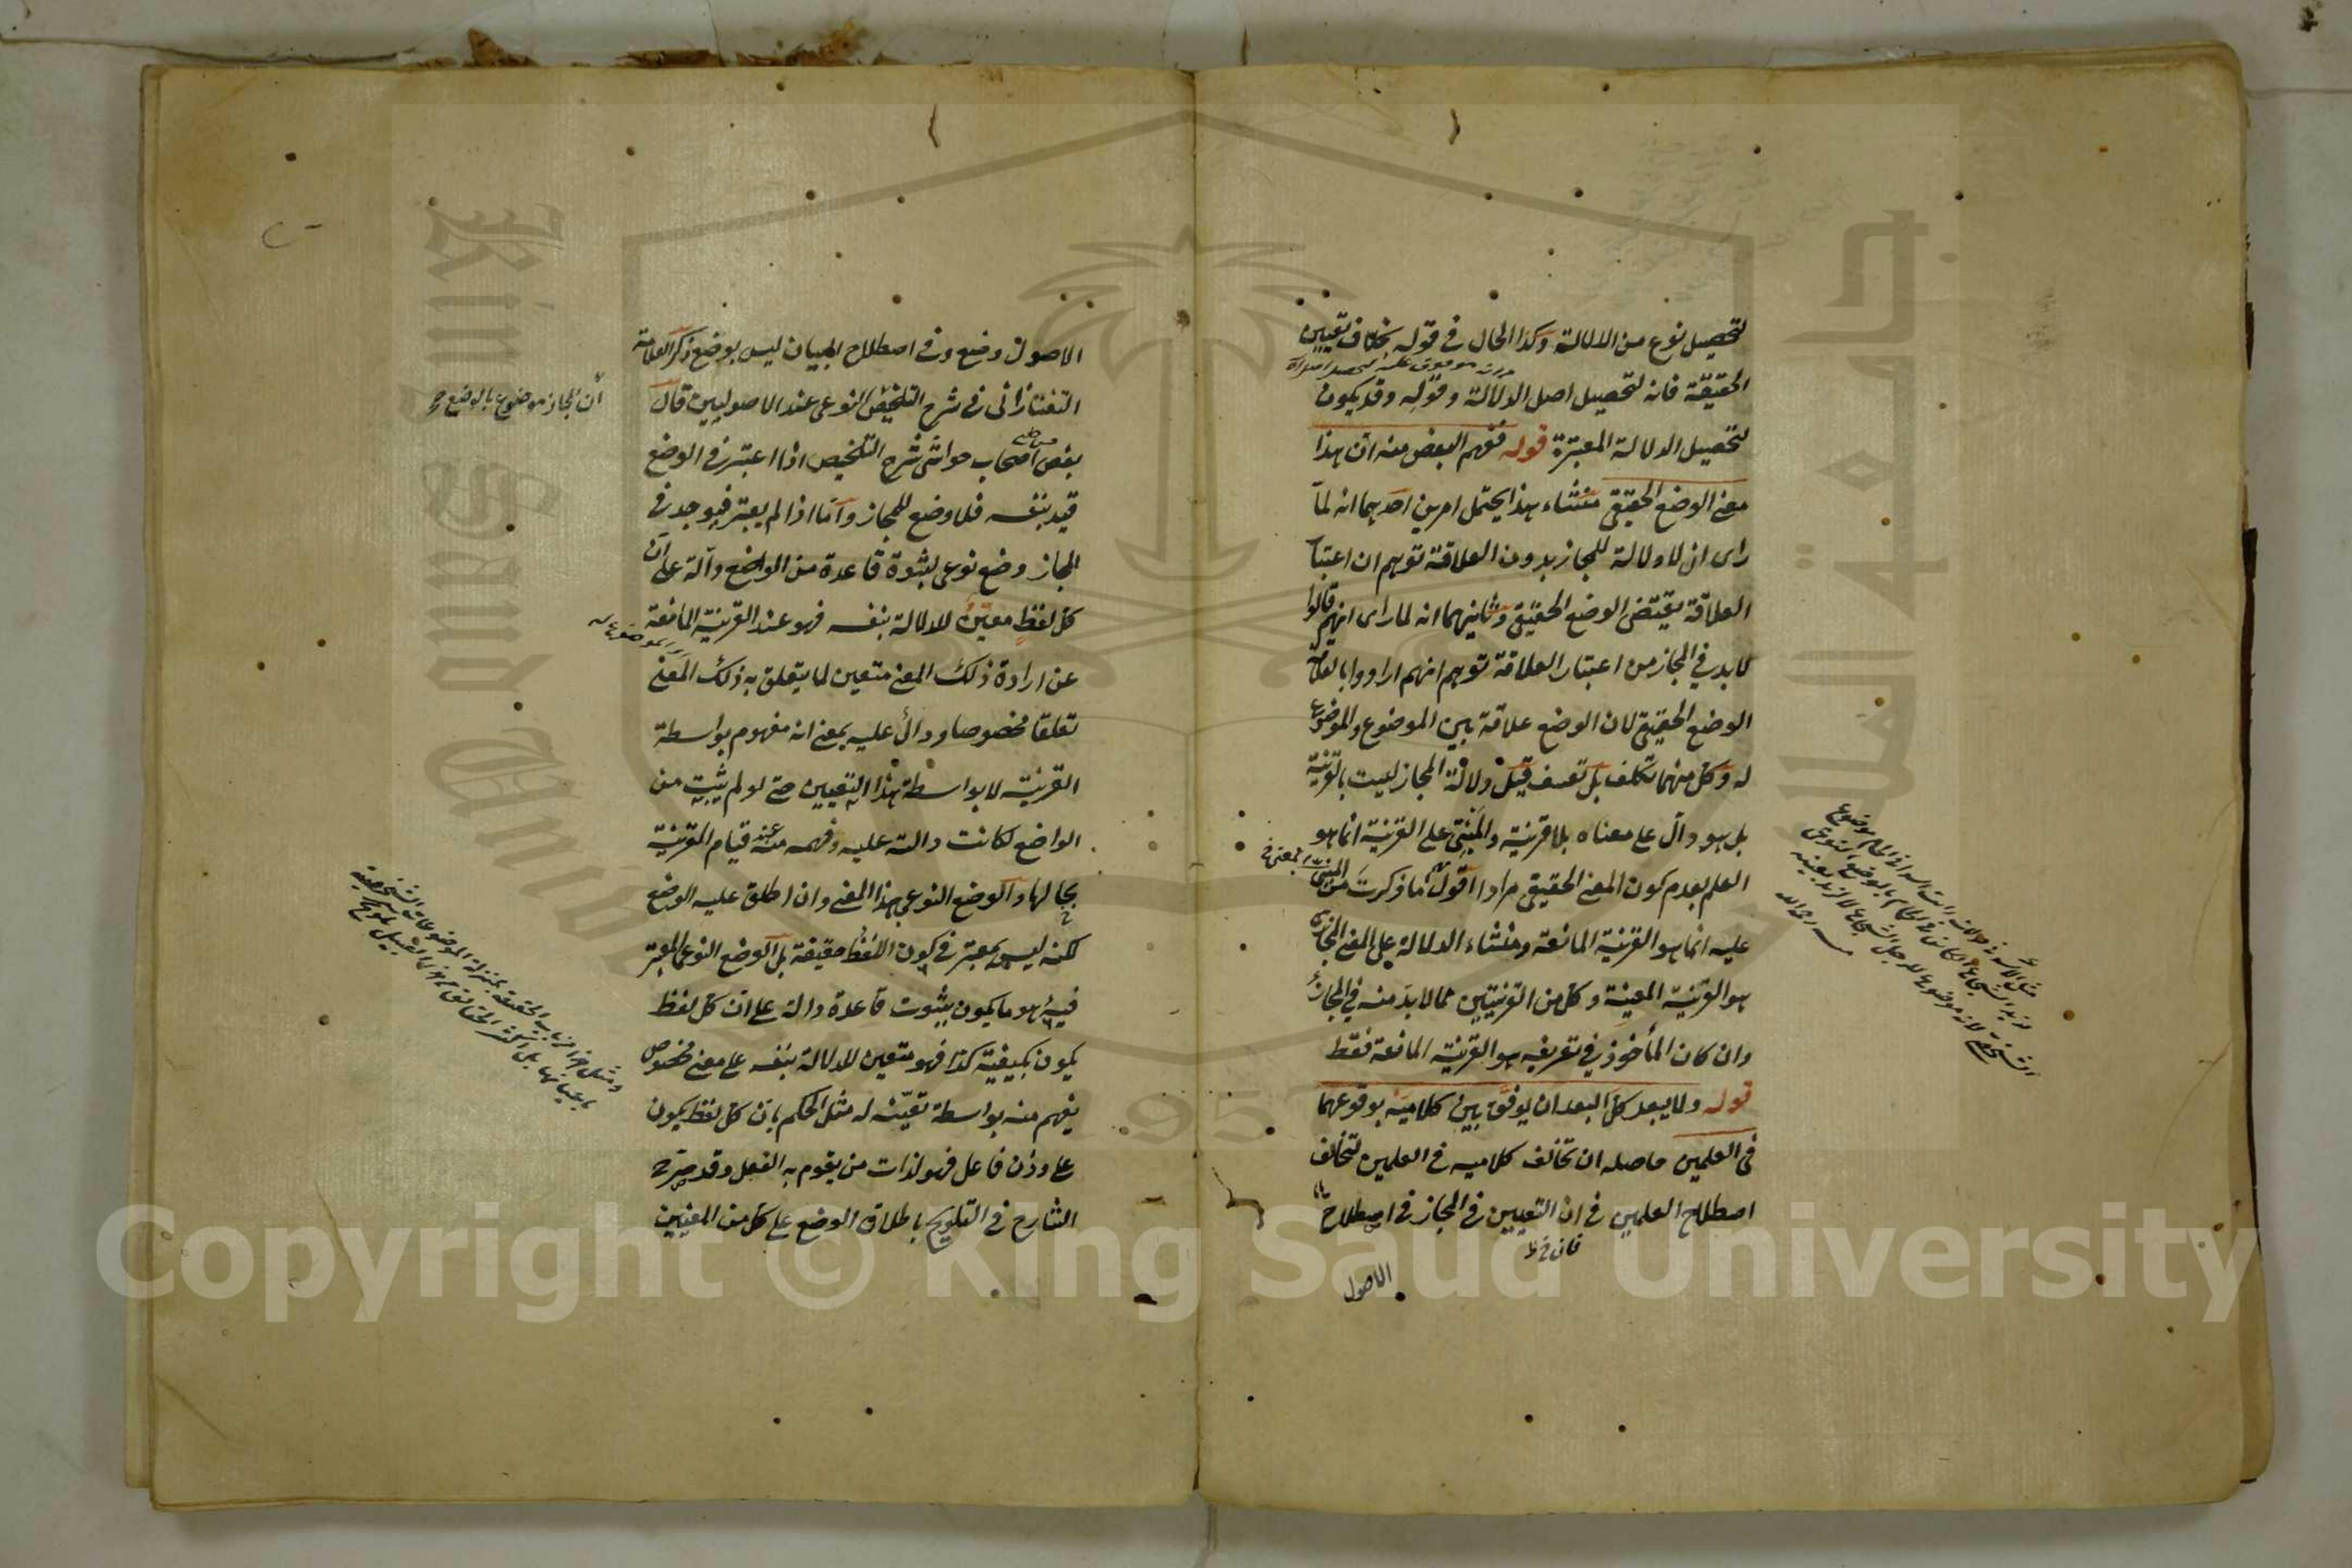 لتحصيل نوع من الدلالة وكذا الحال في قوله بخلاف تعيين
الحقيقة فانه لتحصيل اصل الدلالة وقوله وقد يكون
لتحصيل الدلالة المعتبرة قوله ففهم البعض منه ان هذا
معنى الوضع الحقيقي منشاء هذا يحتمل امرين احدهما انه لما
راى ان لا دلالة للمجاز بدون العلاقة توهم ان اعتبار
العلاقة يقتضى الوضع الحقيقي وثانيهما انه لما راى انهم قالوا
لا بد في المجاز من اعتبار العلاقة توهم انهم ارادوا بالعلاقة
الوضع الحقيقي لان الوضع علاقة بين الموضوع والموضوع
له وكل منهما تكلف بل تعسف قيل دلالة المجاز ليست بالقرينة
بل هو دال على معناه بلا قرينة والمبنى على القرينة انما هو
العلم بعدم كون المعنى الحقيقي مرادا اقول ما ذكرت من المبنى
عليه انما هو القرينة المانعة ومنشاء الدلالة على المعنى المجازى
هو القرينة المعينة وكل من القرينتين مما لا بد منه في المجاز
وان كان المأخوذ في تعريفه هو القرينة المانعة فقط
قوله ولا يبعد كل البعد ان يوفق بين كلاميه بوقوعهما
فى العلمين حاصله ان تخالف كلاميه في العلمين لتخالف
اصطلاح العلمين في ان التعيين في المجاز في اصطلاح
الاصول
الاصول وضع وفى اصطلاح البيان ليس بوضع ذكر العلامة
التفتازانى في شرح التلخيص النوعى عند الاصوليين قال
ان المجاز موضوع بالوضع
بعض اصحاب حواشى شرح التلخيص اذا اعتبر في الوضع
قيد بنفسه فلا وضع للمجاز وأما اذا لم يعتبر فيوجد في
المجاز وضع نوعى لثبوة قاعدة من الواضع دالة على ان
كل لفظ معين للدلالة بنفسه فهو عند القرينة المانعة
عن ارادة ذلك المعنى متعين لما يتعلق به ذلك المعنى
تعلقا مخصوصا ودال عليه بمعنى انه مفهوم بواسطة
القرينة لا بواسطة هذا التعيين حتى لو لم يثبت من
الواضع لكانت دالة عليه وفهمه منه عند قيام القرينة
بحالها والوضع النوعى بهذا المعنى وان اطلق عليه الوضع
لكنه ليس بمعتبر في كون اللفظ حقيقة بل الوضع النوعى المعتبر
فيه هو ما يكون بثبوت قاعدة دالة على ان كل لفظ
يكون بكيفية كذا فهو متعين للدلالة بنفسه على معنى مخصوص
يفهم منه بواسطة تعينه له مثل الحكم بان كل لفظ يكون
على وزن فاعل فهو لذات من يقوم به الفعل وقد صرح
الشارح في التلويح باطلاق الوضع على كل من المعنيين
King Saud University
جامعة الملك
1957
Copyright © King Saud University